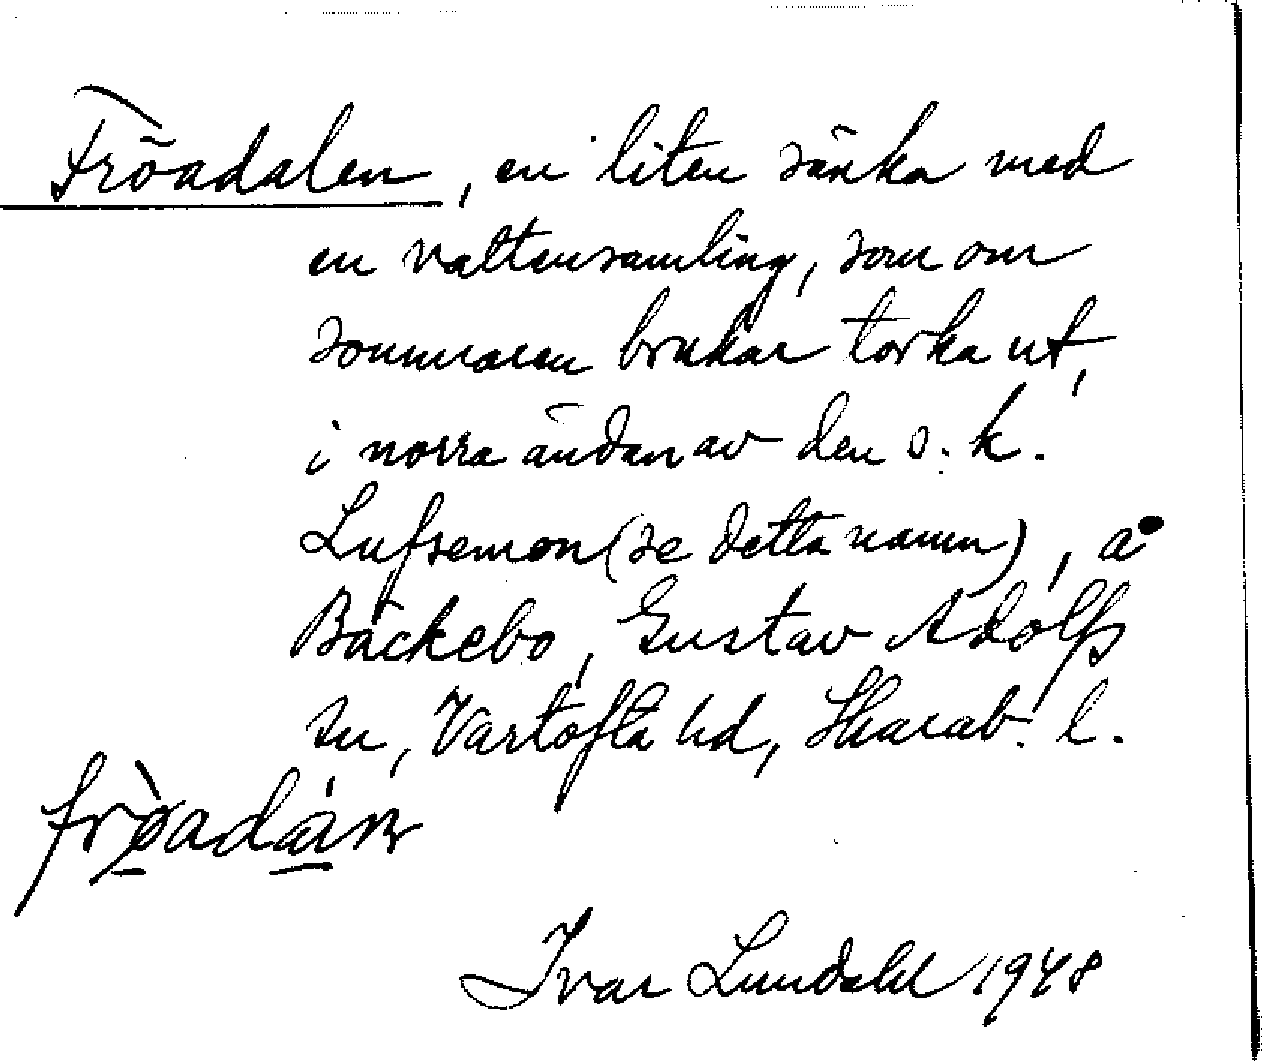 Fröadalen, en liten sänka med
en vattensamling, som om
sommaren brukar torka ut,
i norra ändan av den s.k.
Lufsemon (se detta namn), å
Bäckebo, Gustav Adolfs
sn, Vartofta hd, Skarab. l.
Ivar Lundahl 1948